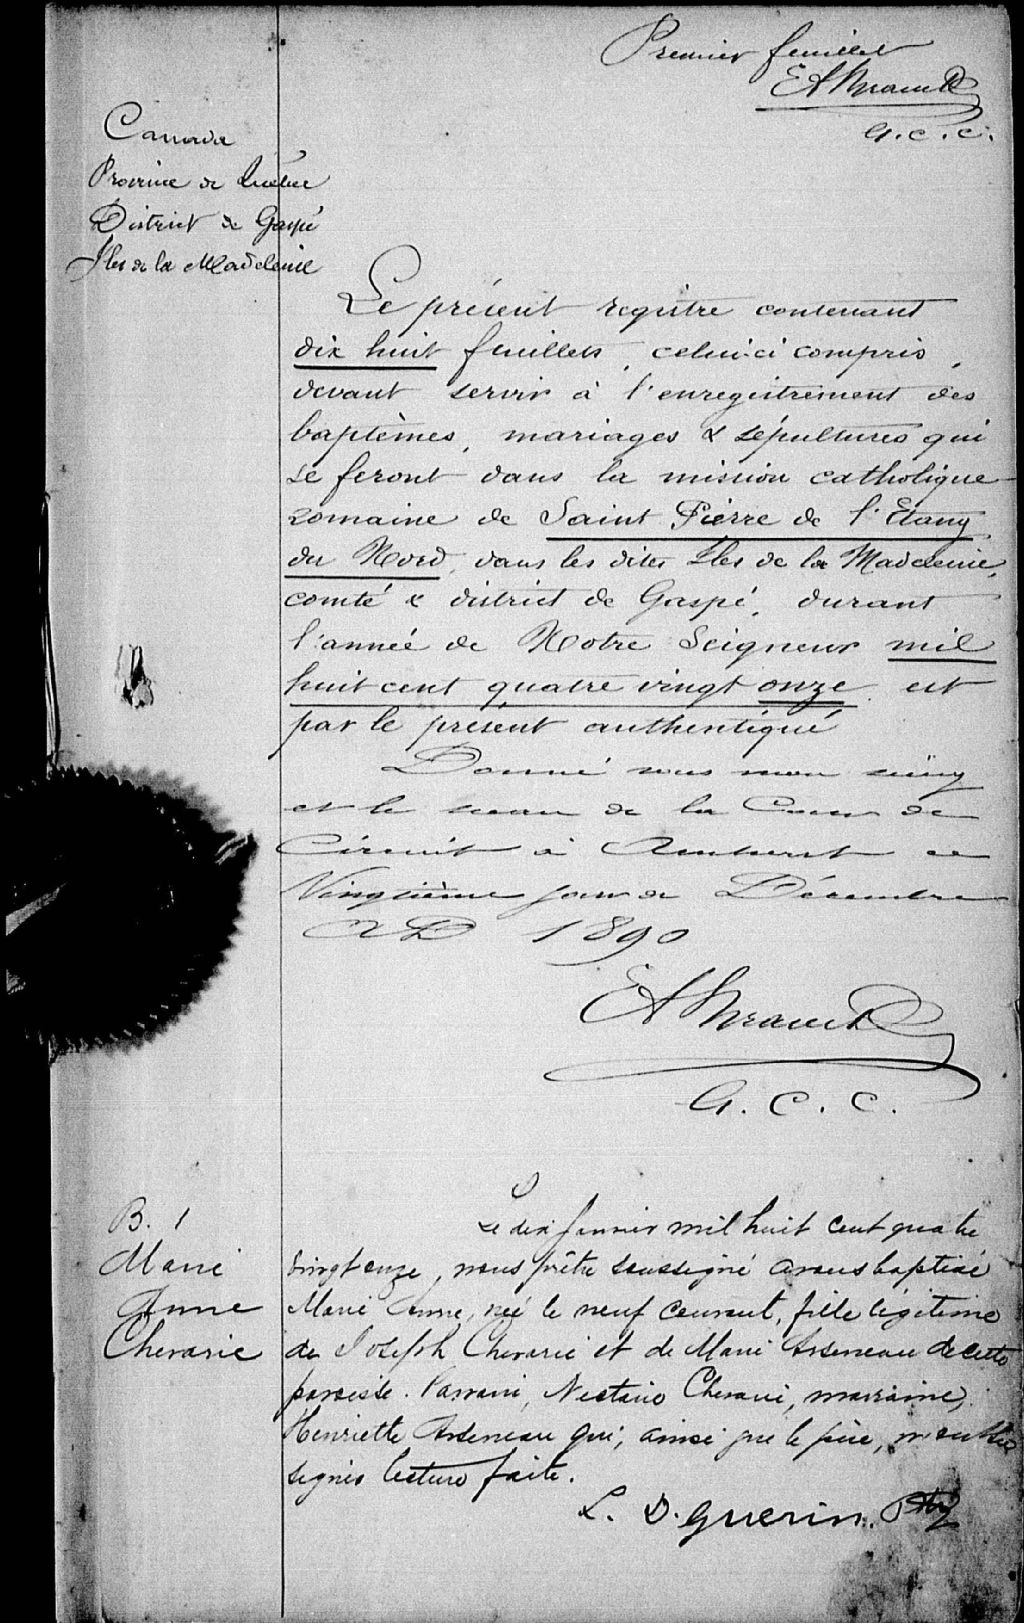 Premier feuillet
G. C. C.
Canada
Province de Québec
District de Gaspé
Iles de la Madeleine
Le présent registre contenant
dix huit feuillets, celui-ci compris,
devant servir à l'enregistrement des
baptêmes, mariages & sépultures qui
se feront dans la mission catholique
romaine de Saint Pierre de l'Etang
du Nord, dans les dites Iles de la Madeleine,
comté & district de Gaspé, durant
l'année de Notre Seigneur mil
huit cent quatre vingt onze est
par le présent authentiqué
Donné sous mon seing
et le sceau de la Cour de
Circuit à Amherst ce
Vingtième jour de Décembre
AD 1890
G. C. C.
B. 1
Marie
Anne
Chevarie
Le dix Janvier mil huit cent quatre
vingt onze, nous prêtre soussigné avons baptisé
Marie Anne, née le neuf courant, fille légitime
de Joseph Chevarie et de Marie Arseneau de cette
paroisse. Parrain, Nectaire Chevarie, marraine,
Henriette Arseneau qui, ainsi que le père, n'ont su
signer lecture faite.
L. D. Guerin. Ptre